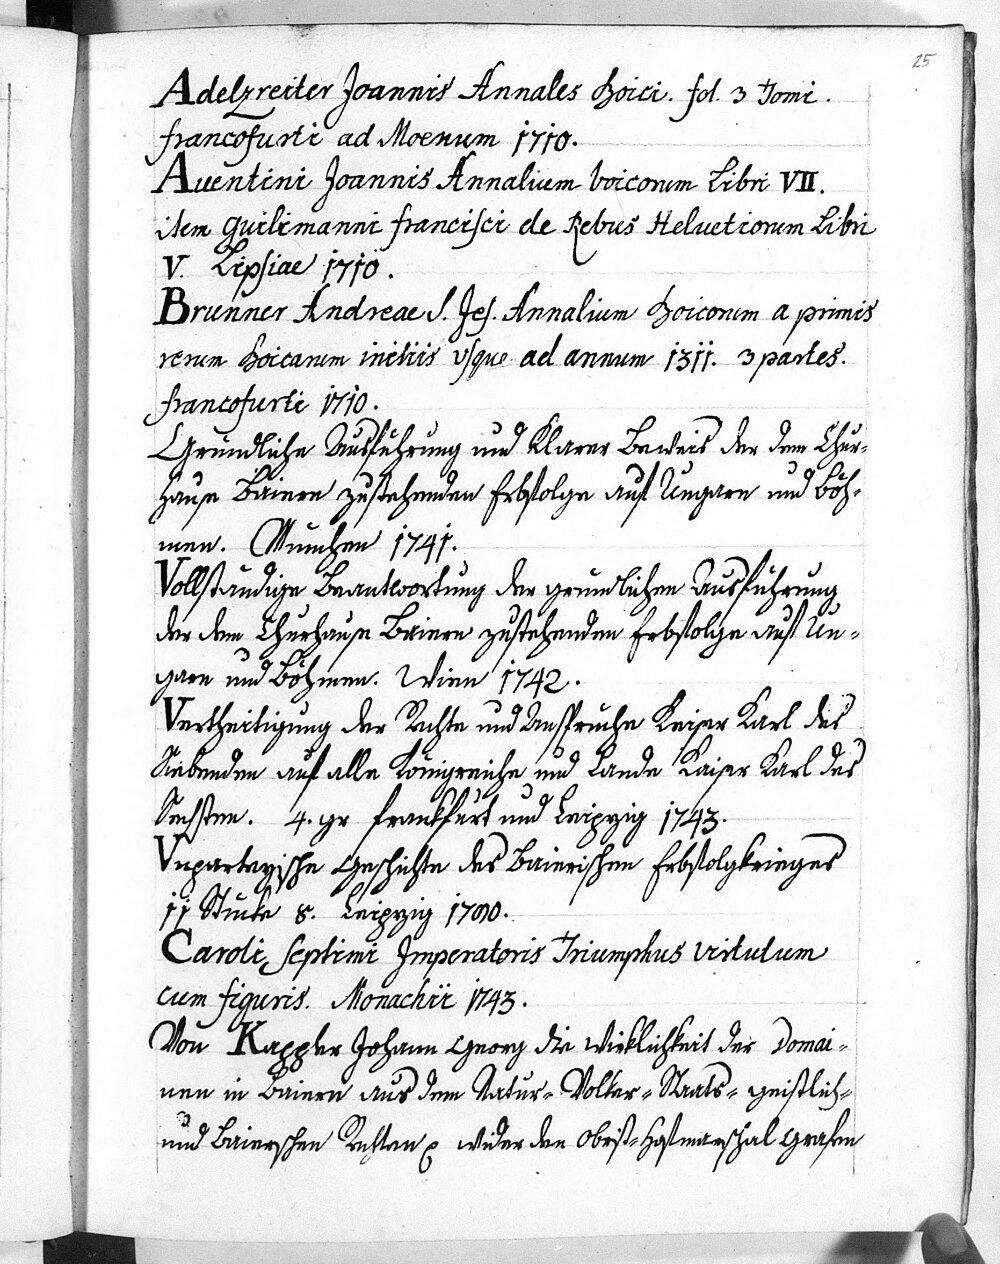 25
Adelzreiter Joannis Annales Boici. fol. 3 Tomi.
francofurti ad Moenum 1710.
Auentini Joannis Annalium boicorum Libri VII.
item Guilimanni francisci de Rebus Heluetiorum Libri
V. Lipsiae 1710.
Brunner Andreae S. Jes. Annalium Boicorum a primis
rerum Boicarum initiis vsque ad annum 1311. 3 partes.
francofurti 1710.
Gründliche Ausführung und Klarer Beweis der dem Chur-
hause Baiern zustehenden Erbfolge auf Ungarn und Böh-
men. München 1741.
Vollständige Beantwortung der gründlichen Ausführung
der dem Churhause Baiern zustehenden Erbfolge auf Un-
garn und Böhmen. Wien 1742.
Vertheitigung der Rechte und Ansprüche Kaiser Karl des
Siebenden auf alle Königreiche und Lande Kaiser Karl des
Sechsten. 4. gr frankfurt und Leipzig 1743.
Vnparteyische Geschichte des Baierischen Erbfolgkrieges
11 Stücke 8. Leipzig
Caroli Septimi Imperatoris Triumphus virtutum
cum figuris. Monachii 1743.
Von Kappler Johann Georg die Wirklichkeit der Domai-
nen in Baiern aus dem Natur- Völker- Staats- geistlich-
und Baierschen Rechten wider den Obrist-Hofmarschal Grafen